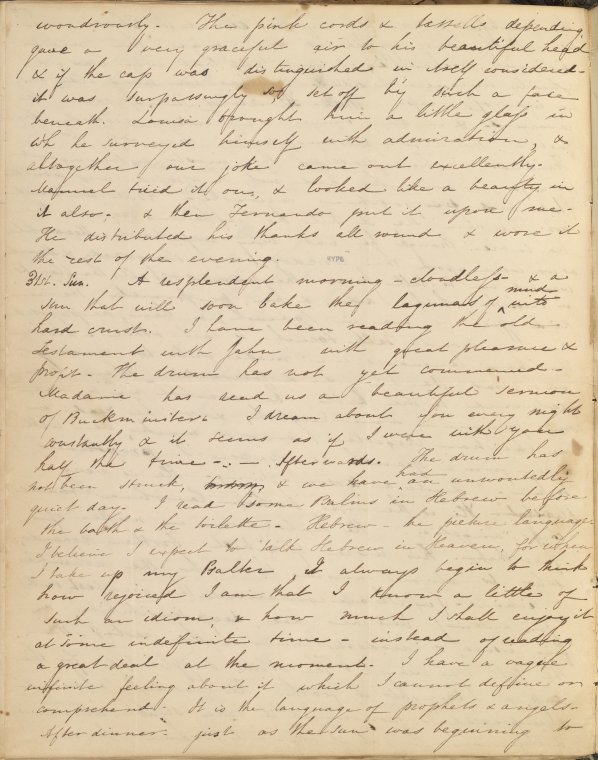 wondrously. The pink cords & tassells depending
gave a very graceful air to his beautiful head
& if the cap was distinguished in itself considered—
it was surpassingly so set off by such a face
beneath. Louisa brought him a little glass in
wh he surveyed himself with admiration, &
altogether our joke came out excellently.
Manuel tried it on, & looked like a beauty in
it also. & then Fernando put it upon me.
He distributed his thanks all round & wore it
the rest of the evening.
NYPL
31st. Sun. A resplendent morning — cloudless & a
sun that will soon bake the lagunas of mud into
hard crust. I have been reading the old
Testament with Jahn with great pleasure &
profit. The drum has not yet commenced—
Madame has read us a beautiful sermon
of Buckminster. I dream about you every night
constantly & it seems as if I were with you
half the time — . — Afterwards. The drum has
not been struck, & we have had an unwontedly
quiet day. I read some Psalms in Hebrew before
the bath & the toilette — Hebrew — the picture language
I believe I expect to talk Hebrew in Heaven, for when
I take up my Psalter, I always begin to think
how rejoiced I am that I know a little of
such an idiom, & how much I shall enjoy it
at some indefinite time — instead of reading
a great deal at the moment. I have a vague
infinite feeling about it which I cannot define or
comprehend. It is the language of prophets & angels.
After dinner. just as the sun was beginning to